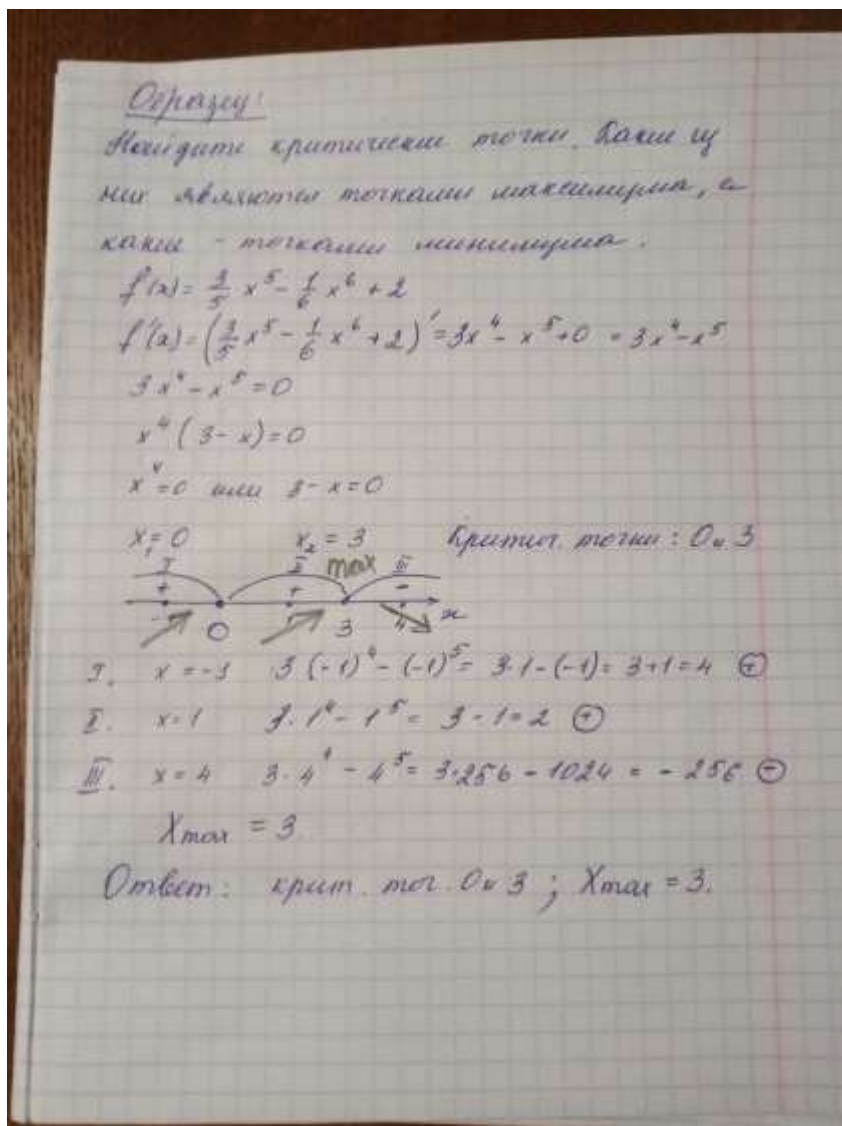 Образец:
Найдите критические точки. Какие из
них являются точками максимума, а
какие - точками минимума.
f(x) = 3/5 x⁵ - 1/6 x⁶ + 2
f'(x) = (3/5 x⁵ - 1/6 x⁶ + 2)' = 3x⁴ - x⁵ + 0 = 3x⁴ - x⁵
3x⁴ - x⁵ = 0
x⁴(3 - x) = 0
x⁴ = 0 или 3 - x = 0
x₁ = 0 x₂ = 3 Критич. точки: 0 и 3
I II max III
+ + -
0 3 4 x
I. x = -1 3·(-1)⁴ - (-1)⁵ = 3·1 - (-1) = 3 + 1 = 4 ⊕
II. x = 1 3·1⁴ - 1⁵ = 3 - 1 = 2 ⊕
III. x = 4 3·4⁴ - 4⁵ = 3·256 - 1024 = -256 ⊖
Xmax = 3
Ответ: крит. точ. 0 и 3; Xmax = 3.